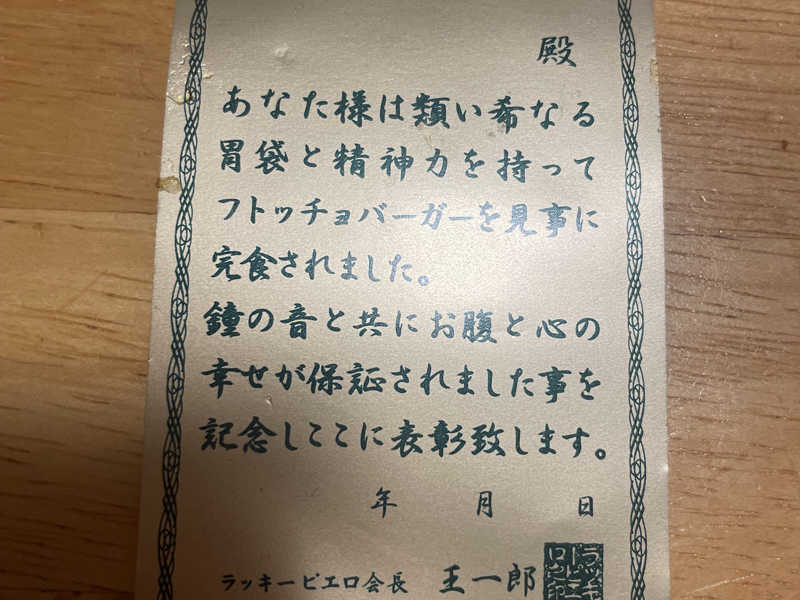 殿
あなた様は類い希なる
胃袋と精神力を持って
フトッチョバーガーを見事に
完食されました。
鐘の音と共にお腹と心の
幸せが保証されました事を
記念しここに表彰致します。
年 月 日
ラッキーピエロ会長 王一郎